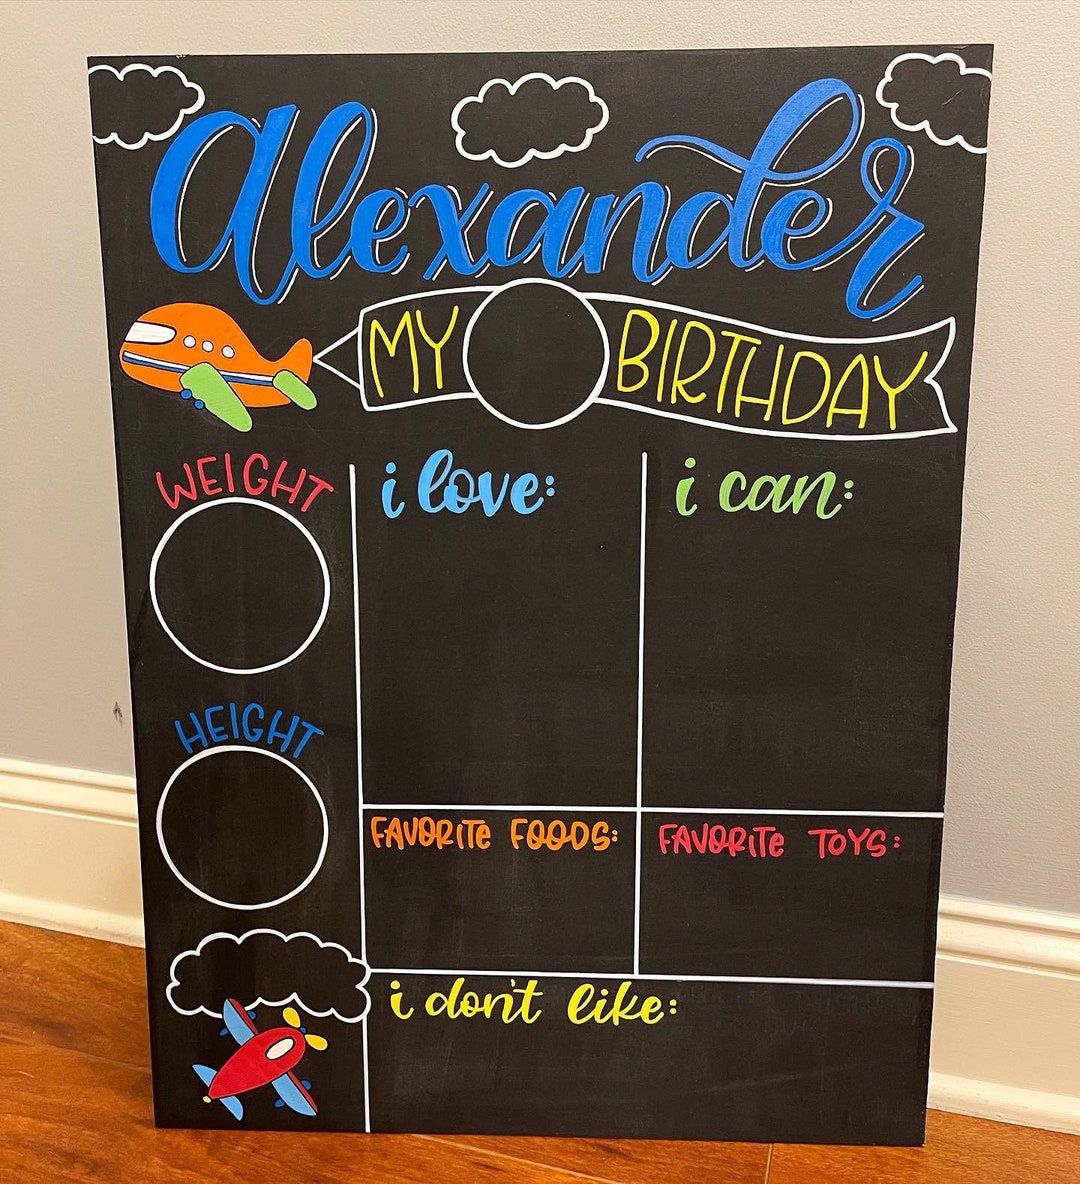 Alexander
MY BIRTHDAY
WEIGHT
i love:
i can:
HEIGHT
FAVORITE FOODS:
FAVORITE TOYS:
i don't like: